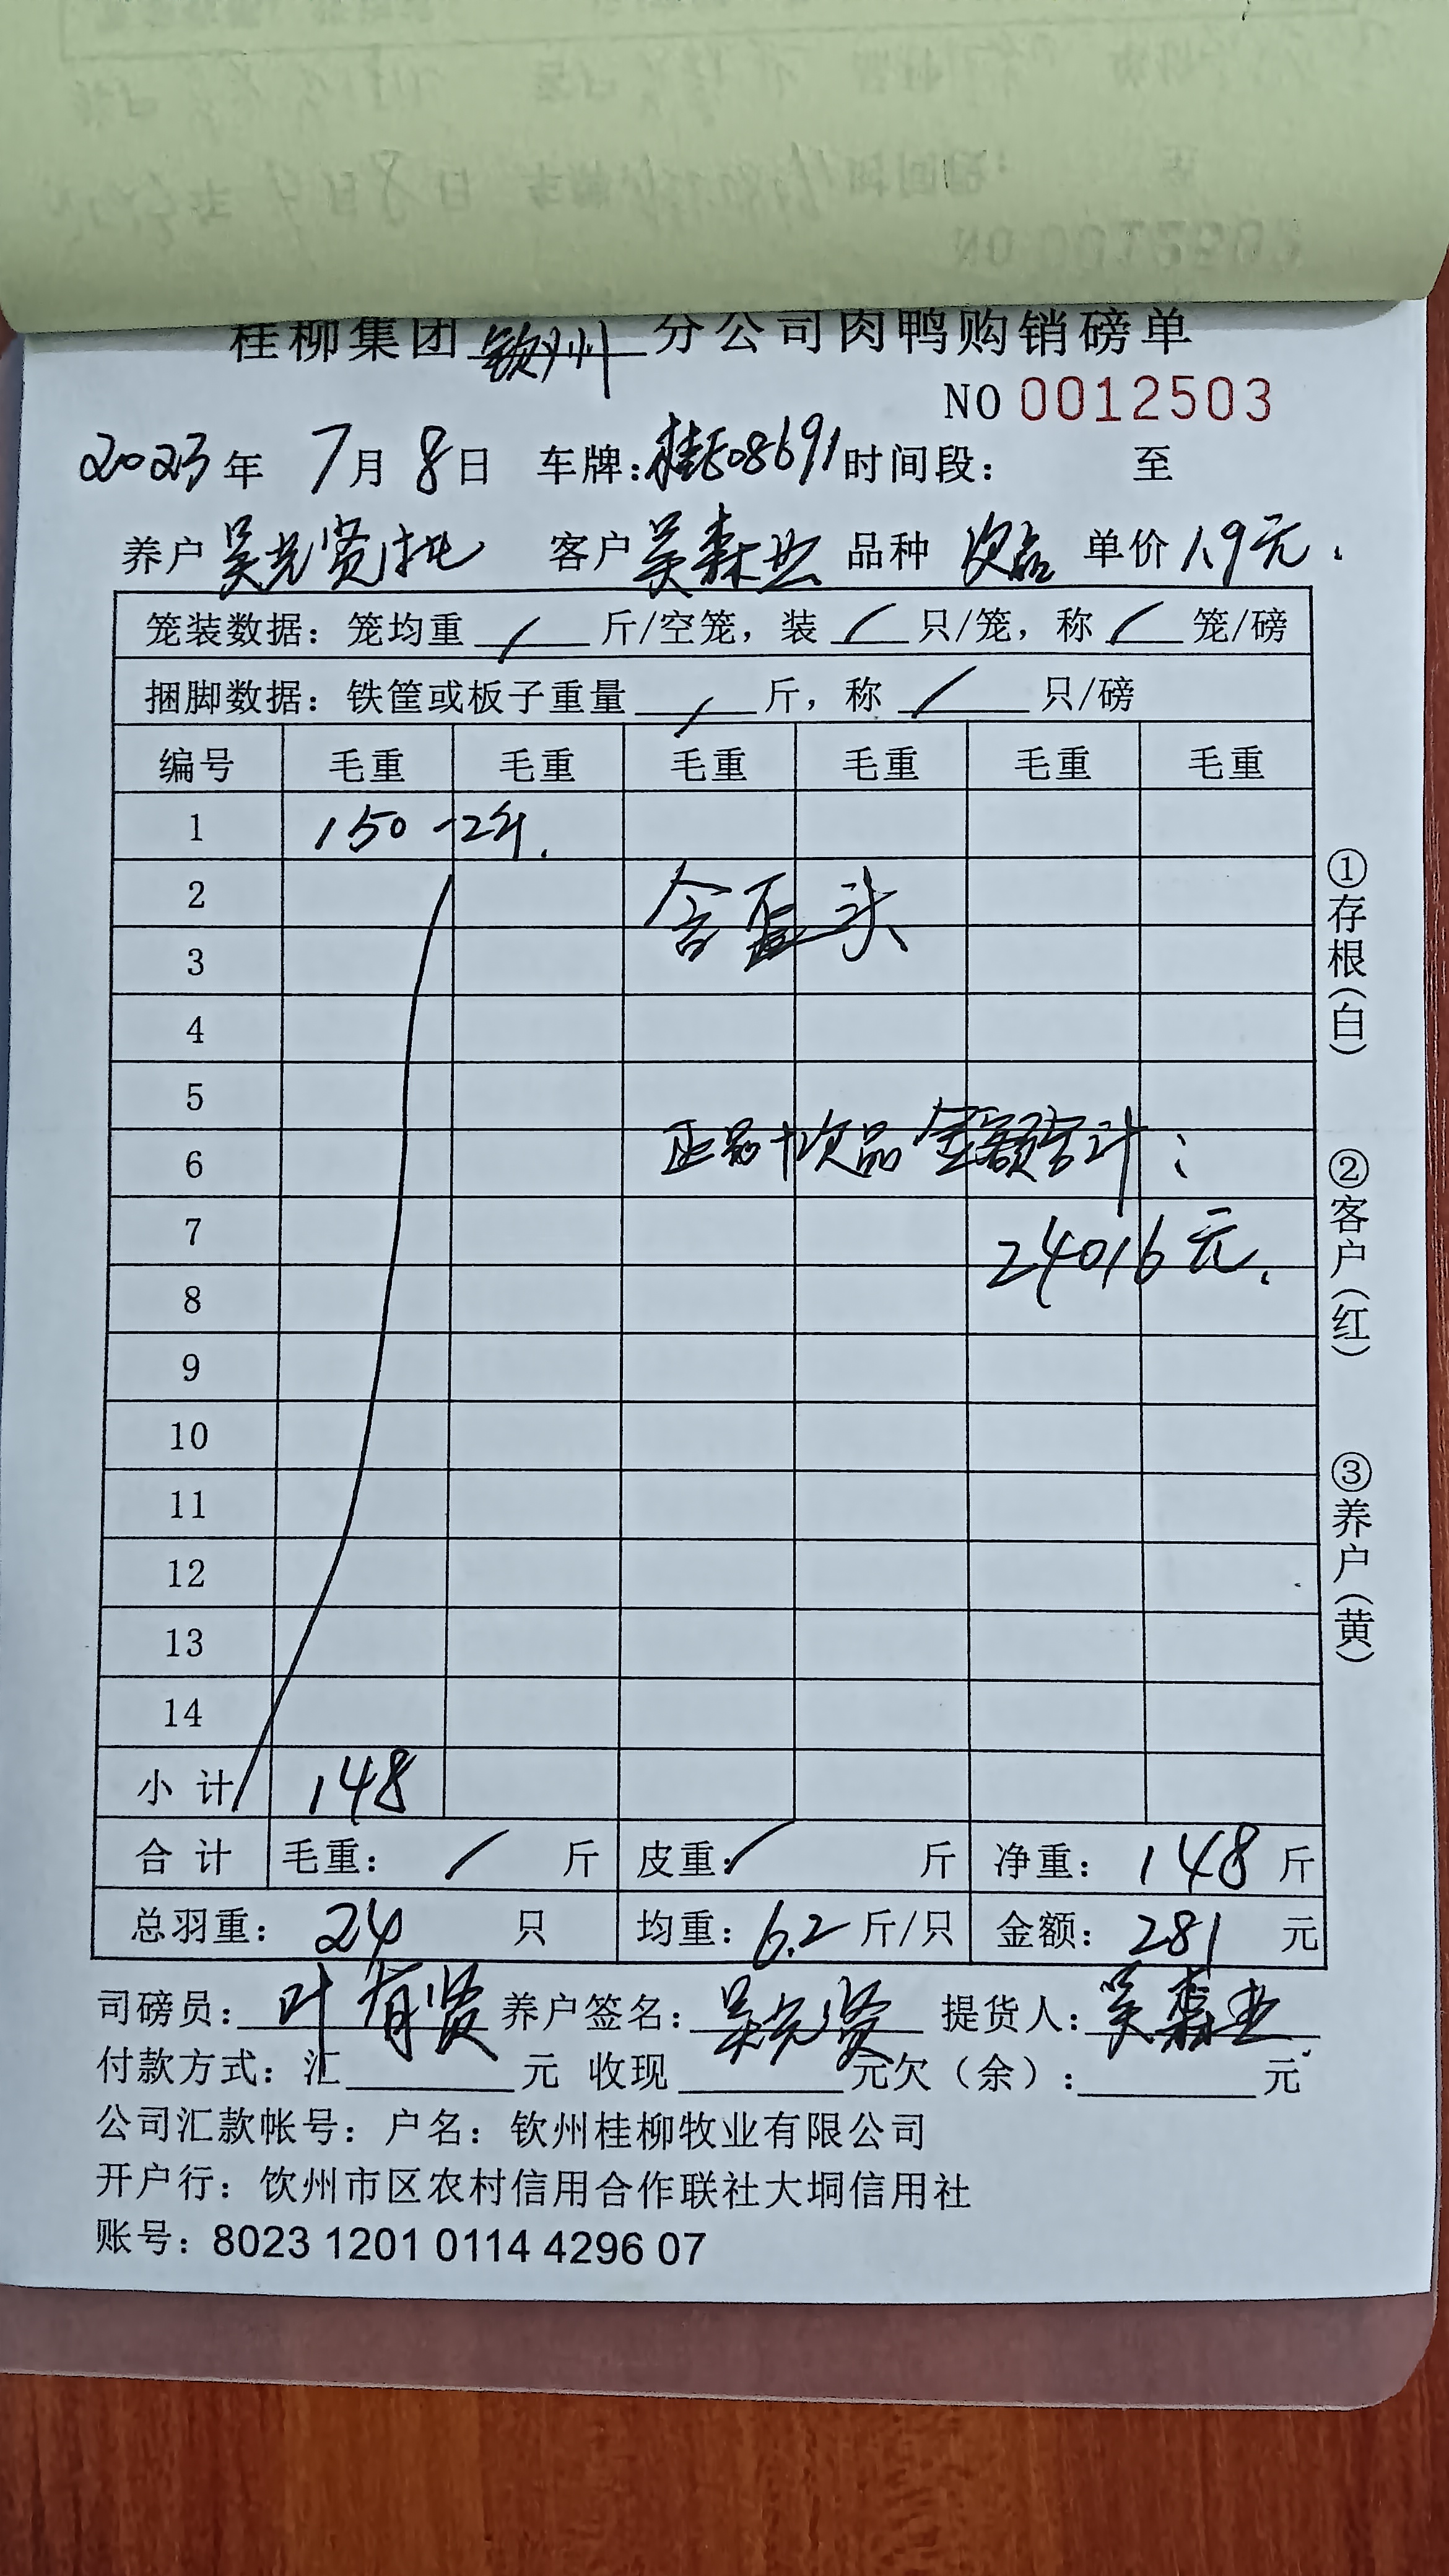 桂柳集团 钦州 分公司肉鸭购销磅单
NO 0012503
2023年 7月 8日 车牌：桂E08691 时间段： 至
养户 吴光贤 客户 吴森业 品种 次品 单价 1.9元.
笼装数据：笼均重 / 斤/空笼，装 / 只/笼，称 / 笼/磅
捆脚数据：铁筐或板子重量 / 斤，称 / 只/磅
编号 毛重 毛重 毛重 毛重 毛重 毛重
1 150 -2斤.
2 含歪头
3
4
5
6 正品+次品金额合计：
7 24016元.
8
9
10
11
12
13
14
小计 148
合计 毛重： / 斤 皮重：/ 斤 净重：148 斤
总羽重：24 只 均重：6.2 斤/只 金额：281 元
司磅员：叶有贤 养户签名：吴光贤 提货人：吴森业
付款方式：汇 元 收现 元欠（余）： 元
公司汇款帐号：户名：钦州桂柳牧业有限公司
开户行：饮州市区农村信用合作联社大垌信用社
账号：8023 1201 0114 4296 07
①存根（白）
②客户（红）
③养户（黄）